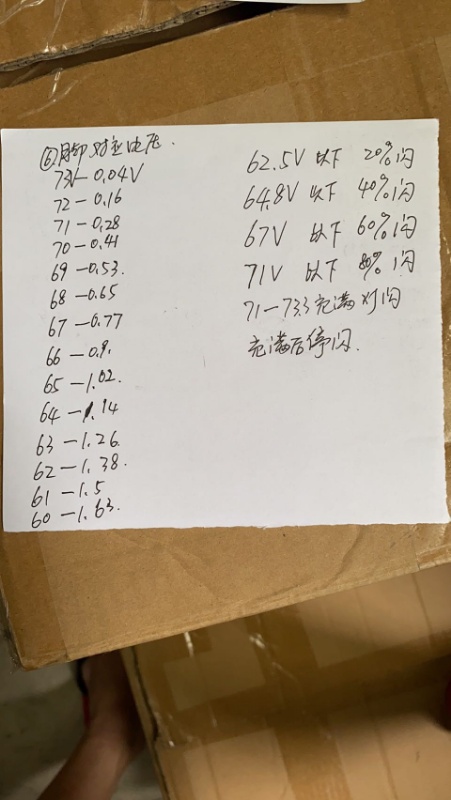 ⑥脚对应电压.
73V—0.04V
72—0.16
71—0.28
70—0.41
69—0.53.
68—0.65
67—0.77
66—0.9.
65—1.02.
64—1.14
63—1.26
62—1.38.
61—1.5
60—1.63.
62.5V 以下 20%闪
64.8V 以下 40%闪
67V 以下 60%闪
71V 以下 80%闪
71—73.3充满灯闪
充满后停闪.